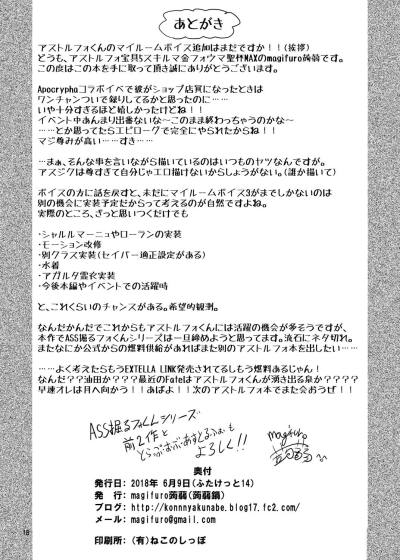 あとがき
アストルフォくんのマイルームボイス追加はまだですか！！(挨拶)
どうも、アストルフォ宝具5スキルマ金フォウマ聖杯MAXのmagifuro蒟蒻です。
この度はこの本を手に取って頂き誠にありがとうございます。
Apocryphaコラボイベで彼がショップ店員になったときは
ワンチャンついで録りしてるかと思ったのに……
いや十分すぎるほど嬉しかったけどね！！
イベント中あんまり出番ないな～このまま終わっちゃうのかな～
……とか思ってたらエピローグで完全にやられたからね！！
マジ尊みが高い……すき……
…まぁ、そんな事を言いながら描いているのはいつものヤツなんですが。
アスジクは尊すぎて自分じゃエロ描けないからしょうがない。(誰か描いて)
ボイスの方に話を戻すと、未だにマイルームボイス3がまでしかないのは
別の機会に実装予定だからって考えるのが自然ですよね。
実際のところ、ざっと思いつくだけでも
・シャルルマーニュやローランの実装
・モーション改修
・別クラス実装(セイバー適正設定がある)
・水着
・アガルタ霊衣実装
・今後本編やイベントでの活躍時
と、これくらいのチャンスがある。希望的観測。
なんだかんだでこれからもアストルフォくんには活躍の機会が多そうですが、
本作でASS掘るフォくんシリーズは一旦締めようと思ってます。流石にネタ切れ。
またなにか公式からの燃料供給があればまた別のアストルフォ本を出したい……
……よく考えたらもうEXTELLA LINK発売されてるしもう燃料あるじゃん！
なんだ？？油田か？？？最近のFateはアストルフォくんが湧き出る泉か？？？？
早速オレは月へ向かう！！あばよ！！次のアストルフォ本でまた会おうぜ！！
ASS掘るフォくんシリーズ
前2作と
とらぶるぶあすとるふぉも
よろしく!!
magifuro
蒟蒻
奥付
発行日: 2018年 6月9日(ふたけっと14)
発 行: magifuro蒟蒻(蒟蒻鍋)
ブログ: http://konnnyakunabe.blog17.fc2.com/
メール: magifuro@gmail.com
印刷所: (有)ねこのしっぽ
18